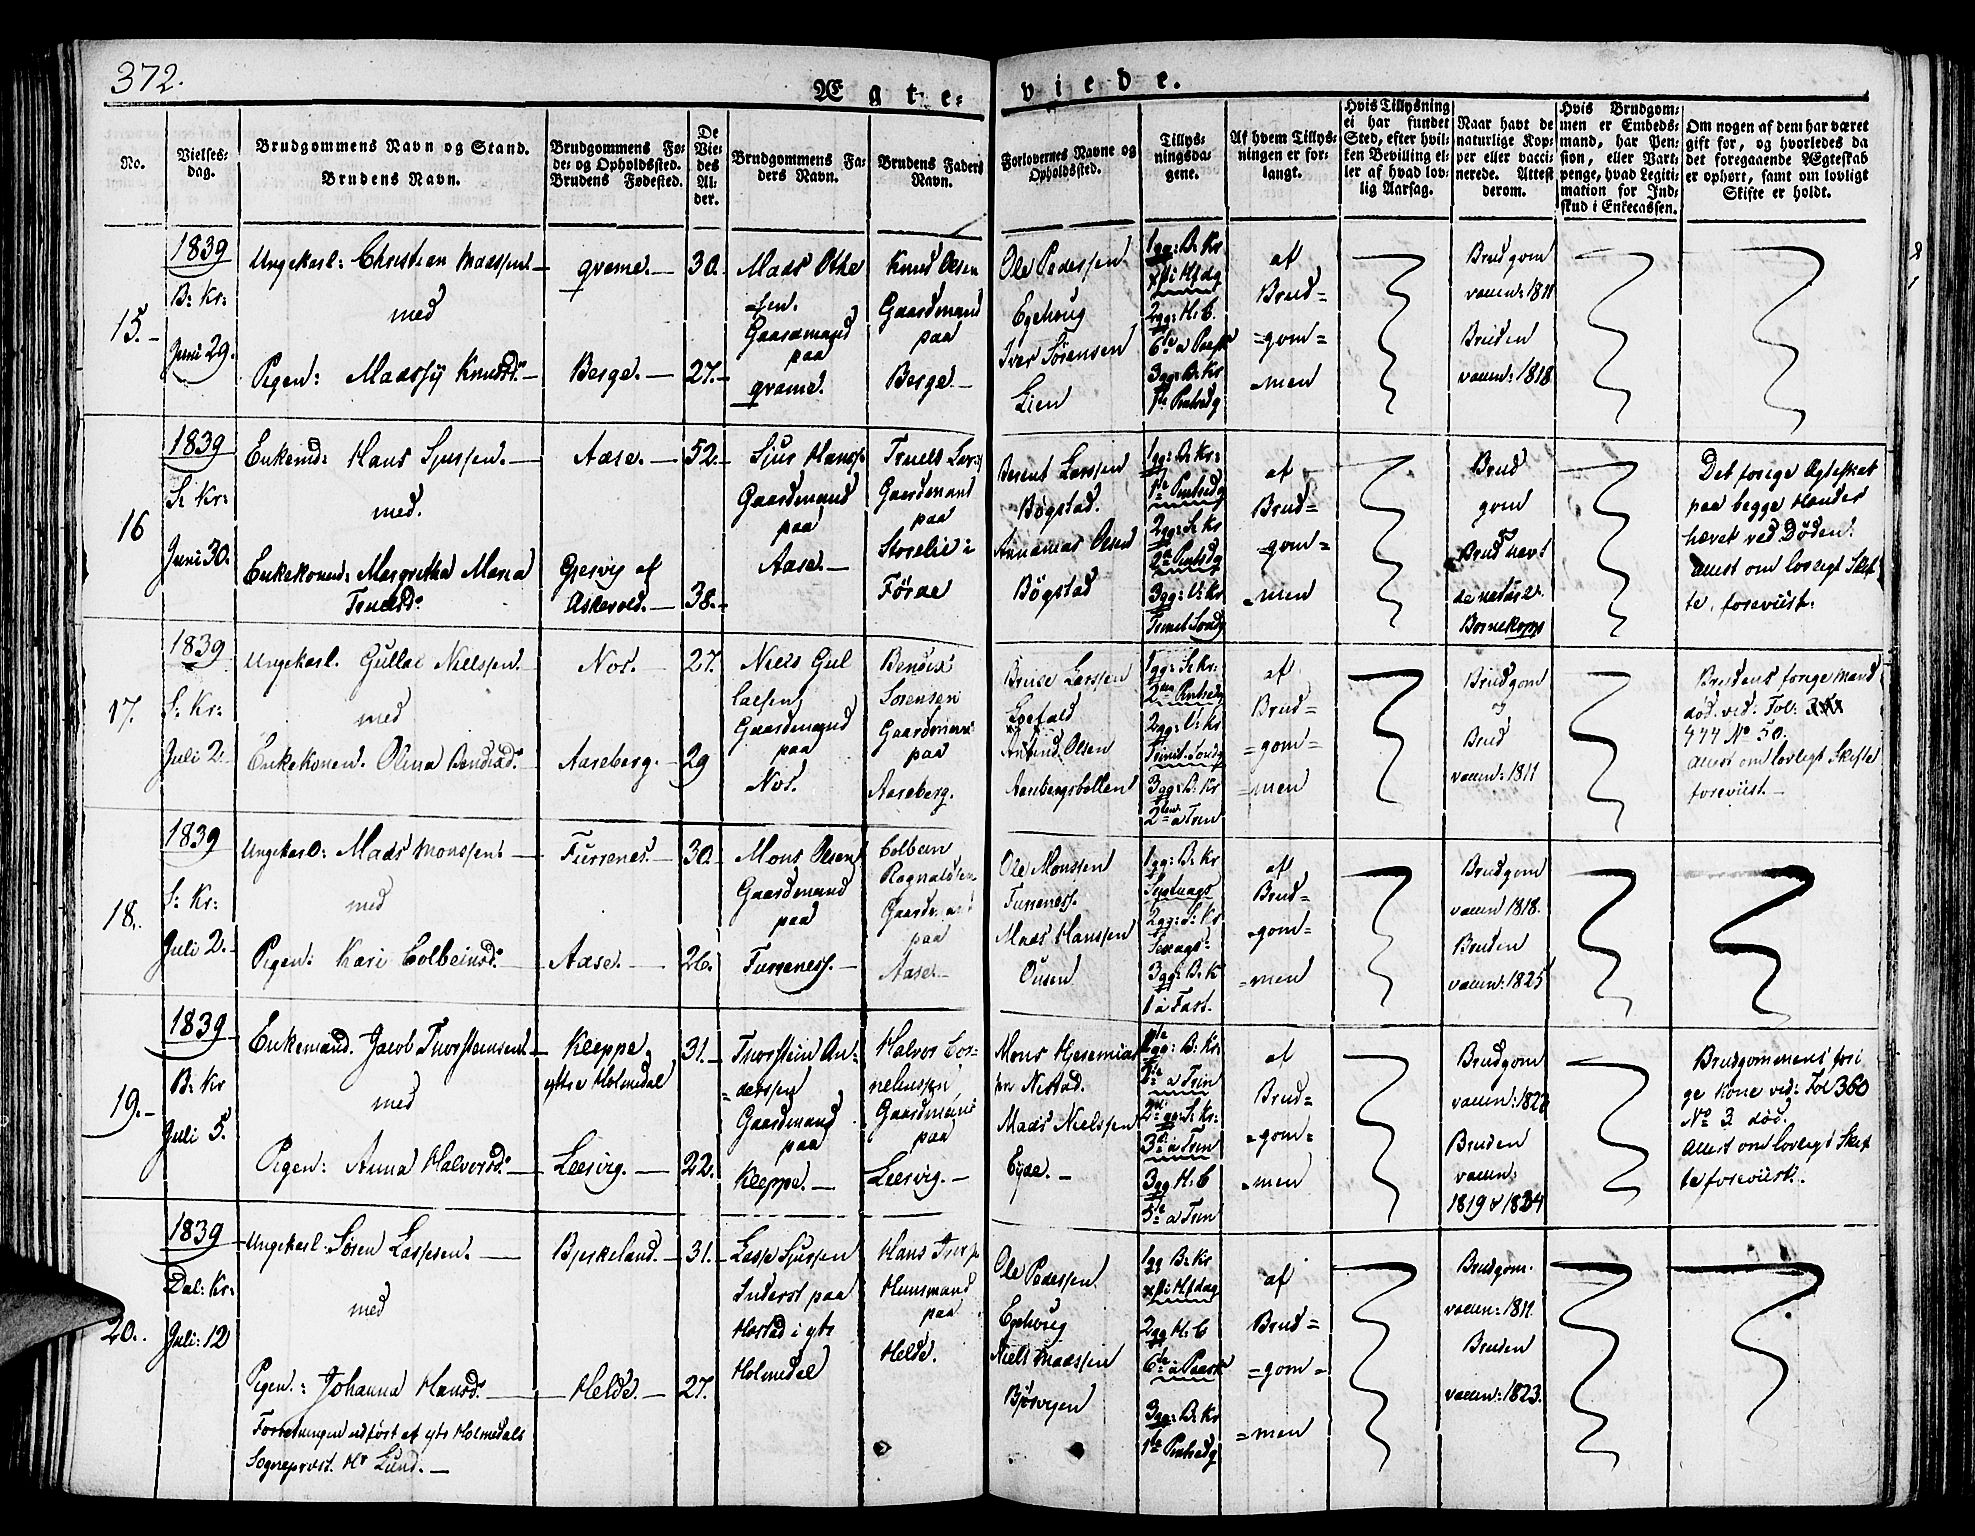 372.
Ægte-
viede.
No.
Vielses-
dag.
Brudgommens Navn og Stand.
Brudens Navn.
Brudgommens Fø-
de- og Opholdssted.
Brudens Fødested.
De
Vie-
des
Al-
der.
Brudgommens Fa-
ders Navn.
Brudens Faders
Navn.
Forlovernes Navne og
Opholdssted.
Tillys-
ningsda-
gene.
Af hvem Tillys-
ningen er for-
langt.
Hvis Tillysning
ei har fundet
Sted, efter hvil-
ken Bevilling el-
ler af hvad lov-
lig Aarsag.
Naar havt de
naturlige Kop-
per eller vacci-
nerede. Attest
derom.
Hvis Brudgom-
men er Embeds-
mand, har Pen-
sion, eller Vart-
penge, hvad Legiti-
mation for Ind-
skud i Enkecassen.
Om nogen af dem har været
gift før, og hvorledes da
det foregaaende Ægteskab
er ophørt, samt om lovligt
Skifte er holdt.
15.-
1839
B: Kr:
Juni 29.
Ungekarl: Christian Madssen
med
Pigen: Madssij Knudsd.
qvame. -
Berge. -
30.
27.-
Mads Othe
sen.
Gaardmand
paa
qvame.
Knud Olsen
Gaardmand
paa
Berge -
Ole Pederssen
Egehoug
Iver Sørensen
Lien
1gg: B: Kr
2gg: H: C.
3gg: B: Kr
af
Brud=
=gom=
=men
Brudgom
vaccin: 1811
Bruden
vaccin: 1818
16
1839
S: Kr:
Juni 30.
Enkemd: Hans Sjurssen. -
med.
Enkekonen: Margretha Maria
Truelsd.
Aase. -
Gjervig af
Askevold. -
52.
38.-
Sjur Hanss
Gaardmand
paa
Aase. -
Truels Lars
Gaardmand
paa
Storelie i
Førde
Berent Larssen
Bøgstad.
Annanias Olsen
Bøgstad
1gg: B: Kr:
2gg: S: Kr
3gg: V: Kr
af
Brud=
=gom=
=men
Brud
gom
Brud havt
de naturl:
Børnekopp
Det forige Ægteskab
paa begge Kander
hævet ved Døden.
Attest om lovligt Skif
te, foreviist.
17.
1839
S: Kr:
Juli 2.
Ungekarl. Gullac Nielssen.
med
Enkekonen. Olina Bendixd.
Nos. -
Aaseberg. -
27.
29
Niels Gul
lacsen
Gaardmand
paa
Nos.
Bendix
Sørensen
Gaardmand
paa
Aaseberg.
Larssen
Olsen
1gg: S: Kr:
2gg: V: Kr
3gg: B: Kr
af
Brud=
=gom=
=men
Brudgom
og
Brud
vaccin: 1811
Brudens forige Mand
død. vid: Fol:
444 No 50.
Attest om lovligt Skifte
foreviist. -
18.
1839
S: Kr:
Juli 2.
Ungekarl: Mads Monssen -
med
Pigen: Kari Colbeinsd.
Furrenes. -
Aase. -
30.
26.
Mons Olsen
Gaardmand
paa
Furreness. -
Colbein
Ragnaldsen
Gaardmand
paa
Aase -
Ole Monssen
Furreness.
Mads Hanssen
Ousen
1gg: B: Kr
2gg: S: Kr
3gg: B: K
1 i Fast.
af
Brud=
=gom=
=men
Brudgom
vaccin 1818.
Bruden
vaccin: 1825
19.-
1839
B: Kr
Juli 5.
Enkemand. Jacob Thorsteinsen -
med
Pigen: Anna Halvorsd. -
Kleppe
ytre Holmedal
Leervig. -
31.
22.
Thorstein An-
=derssen
Gaardmand
paa
Kleppe. -
Halvor Cor-
neliussen
Gaardmand
paa
Leervig. -
Mons Heremias
sen Nistad.
Mads Nielssen
Eyde. -
gg: B: Kr
a Trin
gg: S: Kr:
3 a Trin
3gg H: C
5te a Trin
af
Brud=
=gom=
=men
Brudgom
Bruden
vaccin:
1819 & 1834
Brudgommens fori
ge Kone vid: Fol 360
No 3. død.
Attest om lovligt Skif
te foreviist.
20.
1839
Dal: Kr:
Juli: 12
Ungekarl. Søren Lassesen. -
med
Pigen: Johanna Hansd. -
Forretningen udført af ytre Holmedals
Sogneprest Hr Lund. -
Bjerkeland. -
Helde. -
31.
27.
Lasse Sjurssen
Inderst paa
Hostad i ytr
Holmedal
Hans
Huusmand
paa
Helde.
Ole Pederssen
Egehoug
Niels Madssen
1gg B: Kr
2gg H: C
3gg: B: Kr
af
Brud=
=gom=
=men
Brudgom.
vaccin: 1811.
Bruden
vaccin: 1823.